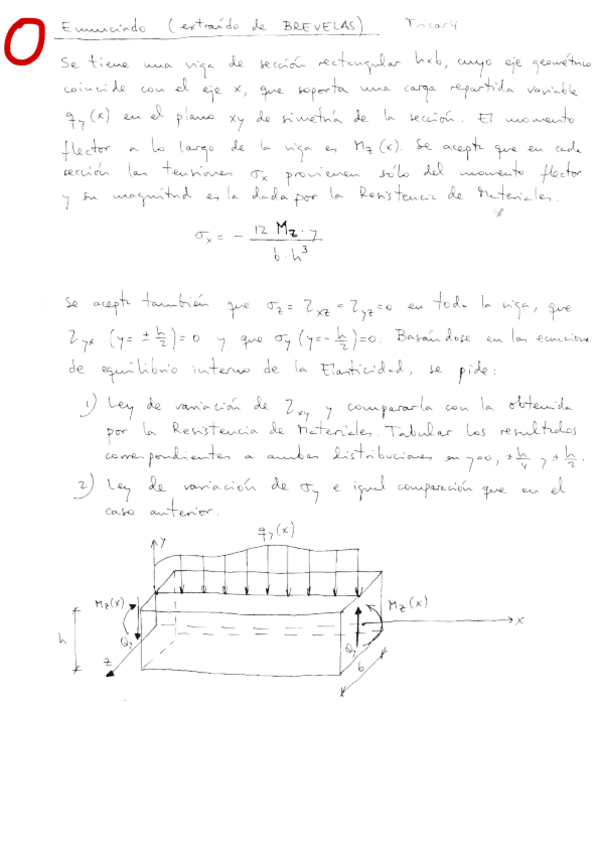 Enunciado (extraído de BREVELAS) Tricar4
Se tiene una viga de sección rectangular hxb, cuyo eje geométrico
coincide con el eje x, que soporta una carga repartida variable
q_y(x) en el plano xy de simetría de la sección. El momento
flector a lo largo de la viga es M_z(x). Se acepta que en cada
sección las tensiones σ_x provienen sólo del momento flector
y su magnitud es la dada por la Resistencia de Materiales.
σ_x = - 12 M_z · y / b · h³
Se acepta también que σ_z = τ_xz = τ_yz = 0 en toda la viga, que
τ_yx (y = ± h/2) = 0 y que σ_y (y = - h/2) = 0. Basándose en las ecuaciones
de equilibrio interno de la Elasticidad, se pide:
1) Ley de variación de τ_xy y compararla con la obtenida
por la Resistencia de Materiales. Tabular los resultados
correspondientes a ambas distribuciones en y=0, ± h/4 y ± h/2.
2) Ley de variación de σ_y e igual comparación que en el
caso anterior.
q_y(x)
y
M_z(x)
M_z(x)
x
h
Q_y
Q_y
z
b